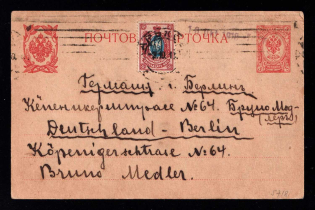 ПОЧТОВАЯ КАРТОЧКА
Германия Берлинъ
Кёпеникерштрасе №64. Бруно Мед-
леръ
Deutschland - Berlin
Köpenigerschtrase №64.
Bruno Medler.